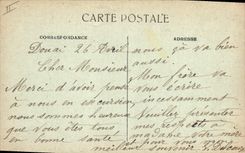 II
CARTE POSTALE
CORRESPONDANCE
ADRESSE
Douai 26 Avril
Cher Monsieur
Merci d'avoir pensé
à nous en excursion
nous sommes heureux
que vous êtes tous
en bonne santé
nous ça va bien
aussi.
Mon frère va
vous écrire
incessamment
Veuillez présenter
mes
madame votre mère
meilleur souvenir